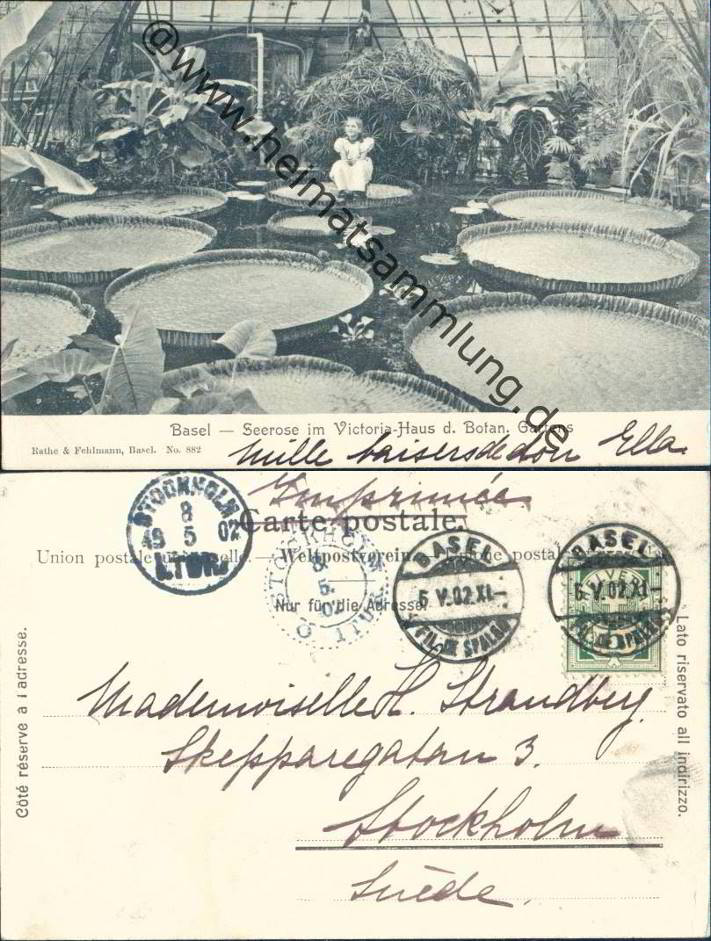 @www.heimatsammlung.de
Basel — Seerose im Victoria-Haus d. Botan. Gartens
Rathe & Fehlmann, Basel. No. 882
Mille baisers de ton Ella.
Imprimée
Carte postale.
Union postale universelle. — Weltpostverein. — Unione postale
Nur für die Adresse
STOCKHOLM
8
49 5 02
1. TUR
STOCKHOLM
8
5.
02
1 TUR
BASEL
6 V.02.XI–
FIL. SPALEN
BASEL
6 V.02.XI–
FIL. SPALEN
HELVETIA
Côté réservé à l'adresse.
Lato riservato all indirizzo.
Mademoiselle H. Strandberg.
Skepparegatan 3.
Stockholm
Suède.